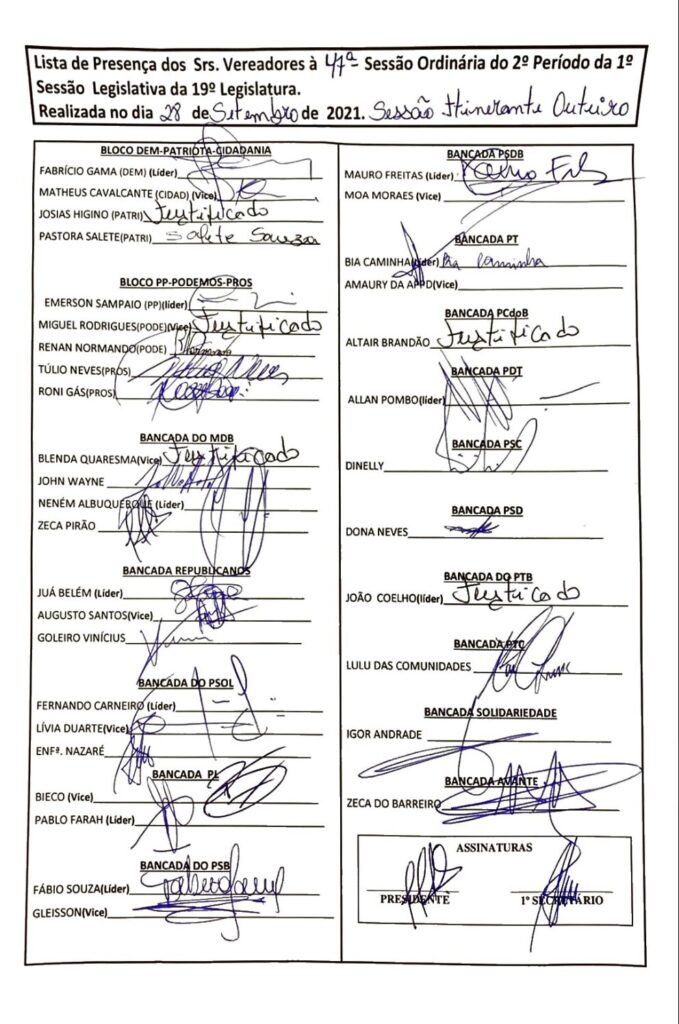 Lista de Presença dos Srs. Vereadores à 47ª Sessão Ordinária do 2º Período da 1º
Sessão Legislativa da 19º Legislatura.
Realizada no dia 28 de Setembro de 2021. Sessão Itinerante Outeiro
BLOCO DEM-PATRIOTA-CIDADANIA
FABRÍCIO GAMA (DEM) (Líder)
MATHEUS CAVALCANTE (CIDAD) (Vice)
JOSIAS HIGINO (PATRI) Justificado
PASTORA SALETE(PATRI) Salete Souza
BLOCO PP-PODEMOS-PROS
EMERSON SAMPAIO (PP)(líder)
MIGUEL RODRIGUES(PODE)(Vice) Justificado
RENAN NORMANDO(PODE)
TÚLIO NEVES(PROS)
RONI GÁS(PROS)
BANCADA DO MDB
BLENDA QUARESMA(Vice) Justificado
JOHN WAYNE
NENÉM ALBUQUERQUE (Líder)
ZECA PIRÃO
BANCADA REPUBLICANOS
JUÁ BELÉM (Líder)
AUGUSTO SANTOS(Vice)
GOLEIRO VINÍCIUS
BANCADA DO PSOL
FERNANDO CARNEIRO (Líder)
LÍVIA DUARTE(Vice)
ENFª. NAZARÉ
BANCADA PL
BIECO (Vice)
PABLO FARAH (Líder)
BANCADA DO PSB
FÁBIO SOUZA(Líder)
GLEISSON(Vice)
BANCADA PSDB
MAURO FREITAS (Líder)
MOA MORAES (Vice)
BANCADA PT
BIA CAMINHA(líder) Bia Caminha
AMAURY DA APPD(Vice)
BANCADA PCdoB
ALTAIR BRANDÃO Justificado
BANCADA PDT
ALLAN POMBO(líder)
BANCADA PSC
DINELLY
BANCADA PSD
DONA NEVES
BANCADA DO PTB
JOÃO COELHO(líder) Justificado
BANCADA PTC
LULU DAS COMUNIDADES
BANCADA SOLIDARIEDADE
IGOR ANDRADE
BANCADA AVANTE
ZECA DO BARREIRO
ASSINATURAS
PRESIDENTE 1º SECRETÁRIO